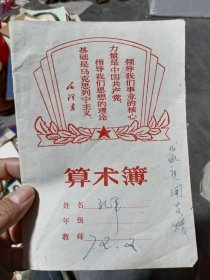 领导我们事业的核心
力量是中国共产党。
指导我们思想的理论
基础是马克思列宁主义
毛泽东
算术簿
姓名
年级
教师
72.2